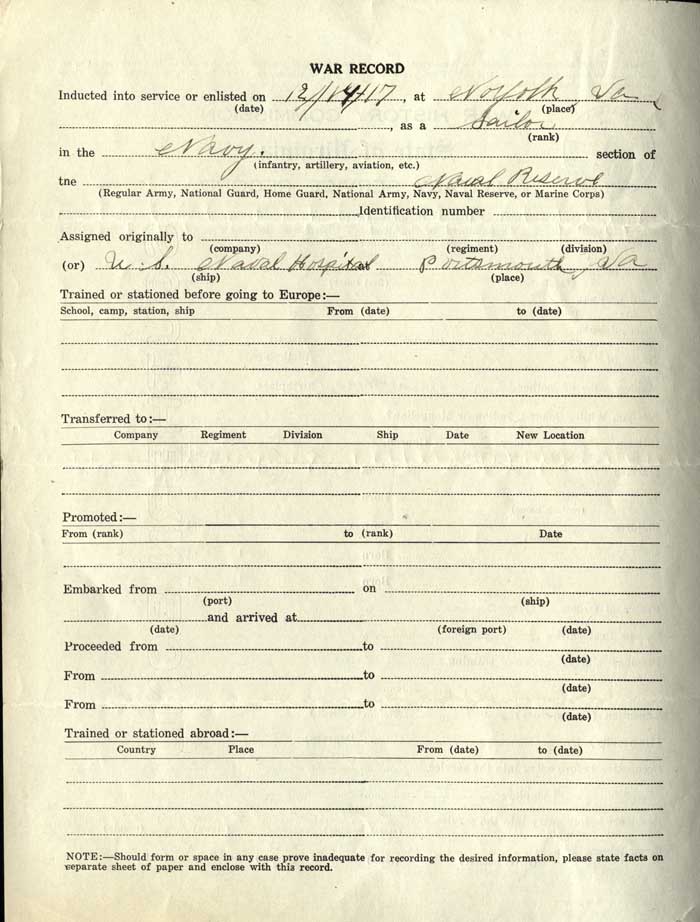 WAR RECORD
Inducted into service or enlisted on 12/14/17, at Norfolk Va
(date) (place)
, as a Sailor
(rank)
in the Navy. section of
(infantry, artillery, aviation, etc.)
tne Naval Reserve
(Regular Army, National Guard, Home Guard, National Army, Navy, Naval Reserve, or Marine Corps)
Identification number
Assigned originally to
(company) (regiment) (division)
(or) U. S. Naval Hospital at Portsmouth, Va
(ship) (place)
Trained or stationed before going to Europe:—
School, camp, station, ship From (date) to (date)
Transferred to:—
Company Regiment Division Ship Date New Location
Promoted:—
From (rank) to (rank) Date
Embarked from on
(port) (ship)
and arrived at
(date) (foreign port) (date)
Proceeded from to
(date)
From to
(date)
From to
(date)
Trained or stationed abroad:—
Country Place From (date) to (date)
NOTE:—Should form or space in any case prove inadequate for recording the desired information, please state facts on
separate sheet of paper and enclose with this record.